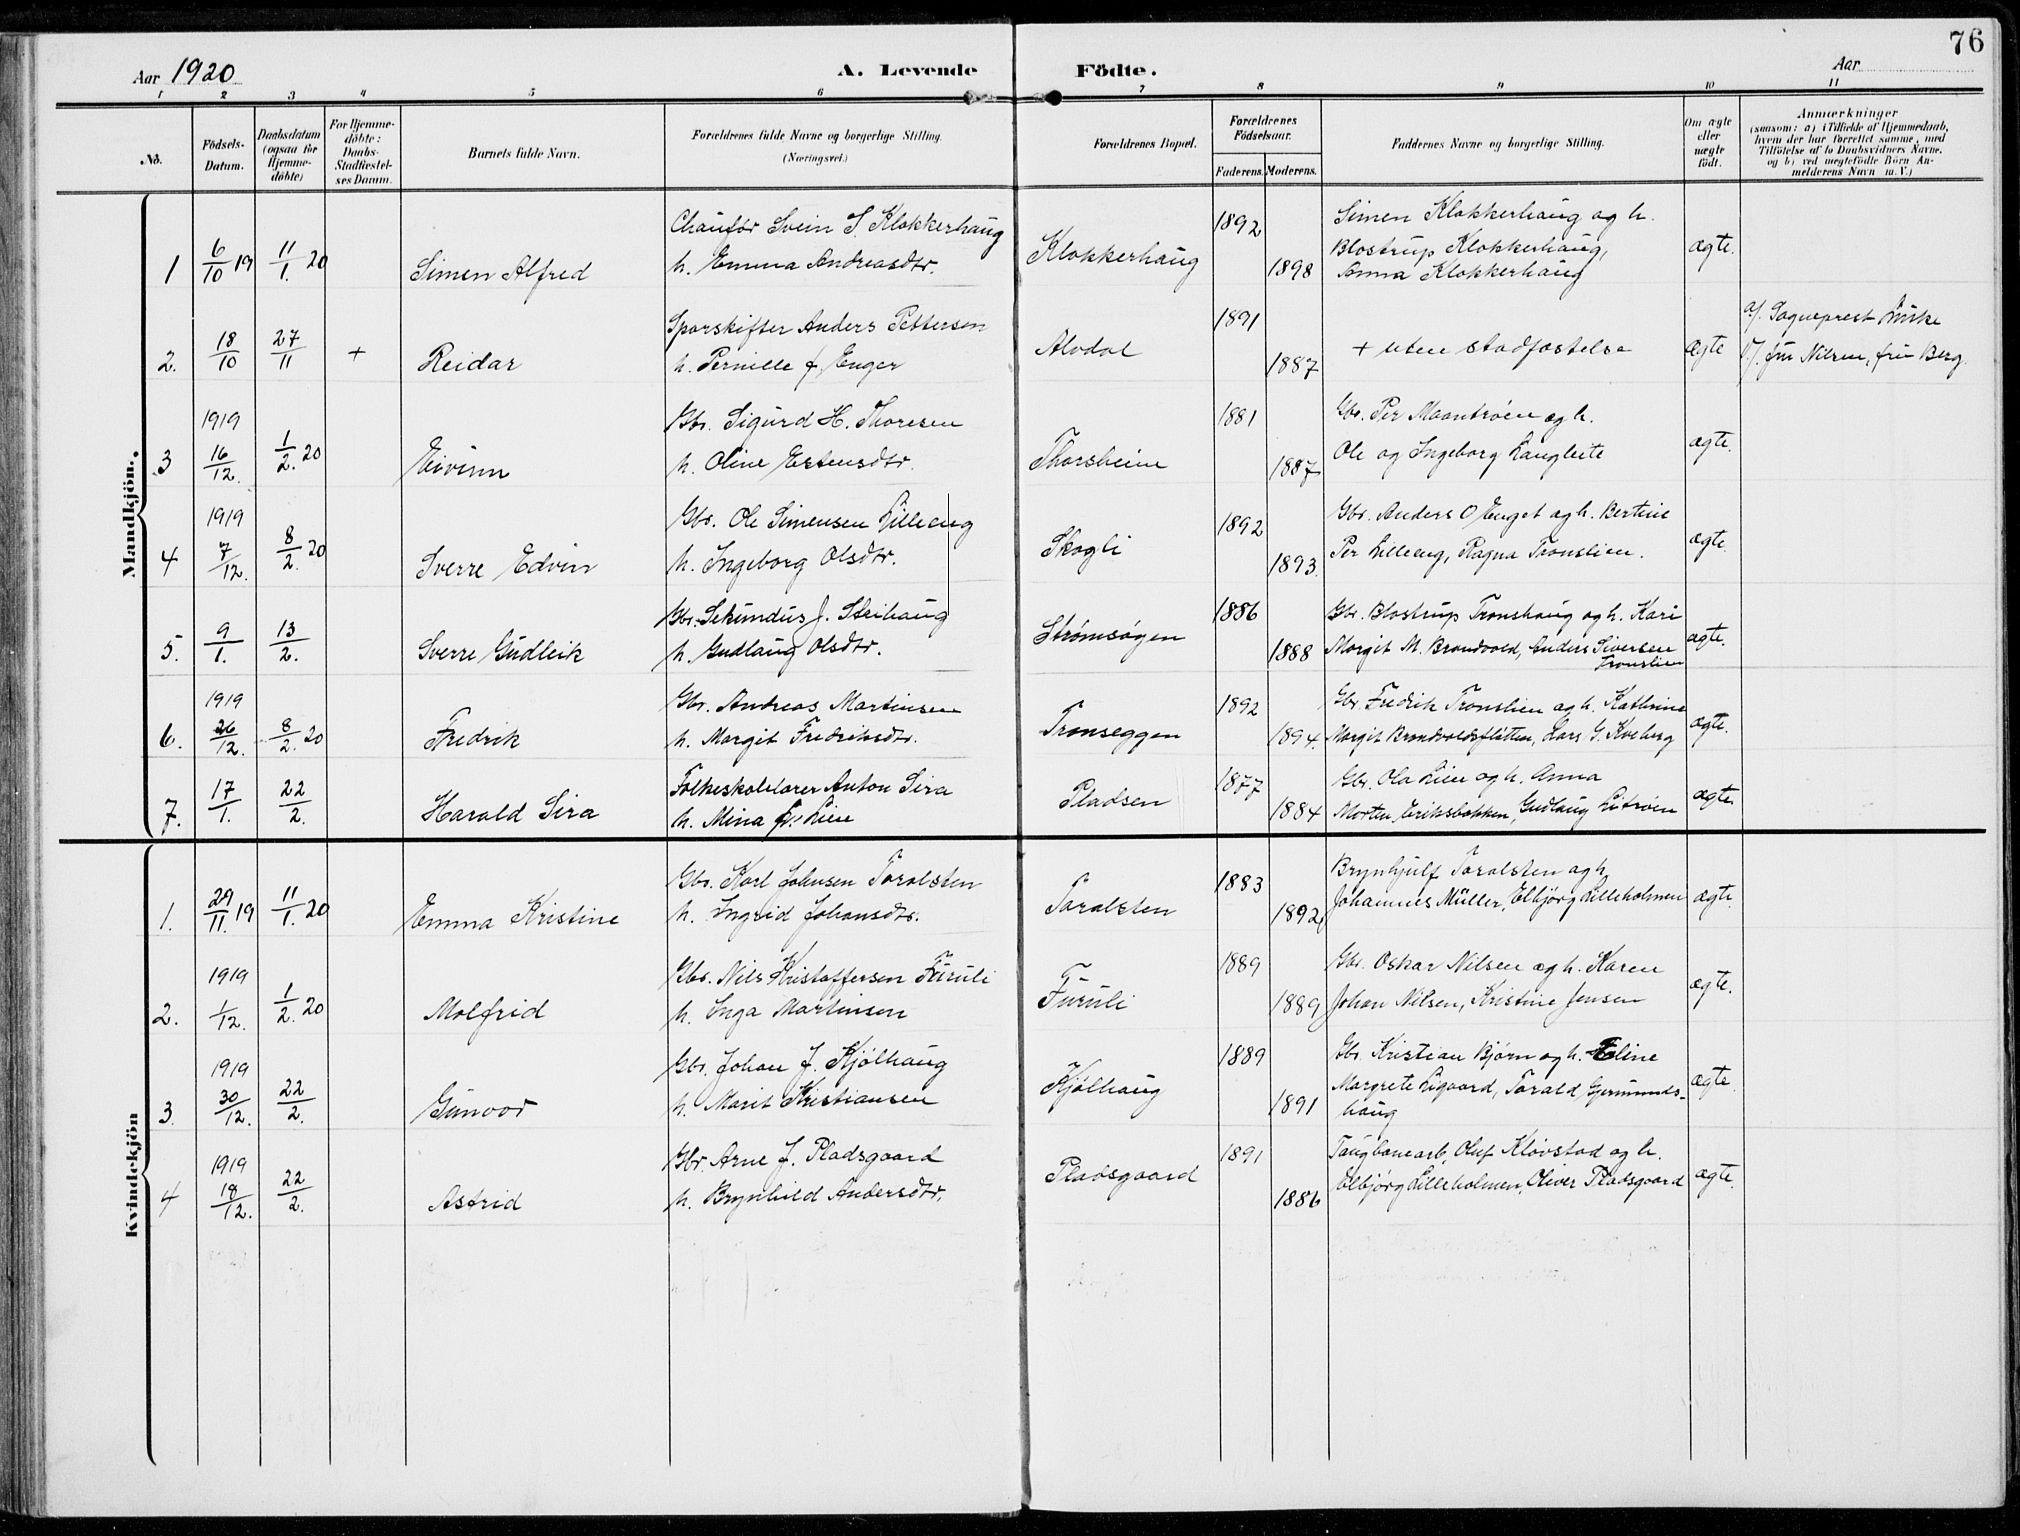 76
Aar 1920
A. Levende Födte.
Aar
1 2 3 4 5 6 7 8 9 10 11
No.
Födsels-Datum.
Daabsdatum (ogsaa for Hjemme-döbte)
For Hjemme-döbte: Daabs-Stadfæstel-ses Datum.
Barnets fulde Navn.
Forældrenes fulde Navne og borgerlige Stilling. (Næringsvei.)
Forældrenes Bopæl.
Forældrenes Födselsaar.
Faderens. Moderens.
Faddernes Navne og borgerlige Stilling.
Om ægte eller uægte födt.
Anmærkninger
(saasom: a) i Tilfælde af Hjemmedaab,
hvem der har forrettet samme, med
Tilföielse af to Daabsvidners Navne,
og b) ved uægtefödte Börn An-
melderens Navn m. V.)
Mandkjön.
1 6/10 19 11/1. 20 Simen Alfred
Chauför Svein S. Klokkerhaug
h. Emma Andreasdtr.
Klokkerhaug 1892 1898
Simen Klokkerhaug og h.
Blostrup Klokkerhaug,
Anna Klokkerhaug
ægte.
2. 18/10 27/11 + Reidar
Sporskifter Anders Pettersen
h. Pernille f. Enger
Alvdal 1891 1887
+ uten stadfæstelse
ægte
a/. Sogneprest
b/. fru Nilsen, fru Berg.
3 1919 16/12. 1/2. 20 Eivinn
Gbr. Sigurd H. Thoresen
h. Oline Estensdtr.
Thorsheim 1881 1887
Gbr. Per Maantröen og h.
Ole og Ingeborg Langleite
ægte.
4 1919 7/12. 8/2. 20 Sverre Edvin
Gbr. Ole Simensen Lilleeng
h. Ingeborg Olsdtr.
Skogli 1892 1893.
Gbr. Anders O Enget og h. Bertine
Per Lilleeng, Ragna Tronslien.
ægte.
5. 9/1. 13/2. Sverre Gudleik
Gbr. Sekundus J. Steihaug
h. Gudlaug Olsdtr.
Strømsøyen 1886 1888
Gbr. Blostrup Tronshaug og h. Kari
Margit M. Brandvold, Anders Siversen
Tronslien
ægte.
6. 1919 26/12. 8/2. 20 Fredrik
Gbr. Andreas Martinsen
h. Margit Fredriksdtr.
Tronseggen 1892 1894.
Gbr. Fredrik Tronslien og h. Kathrine
Margit Brandvoldsfletten, Lars G. Kveberg
ægte.
7. 17/1. 22/2. Harald Sira
Folkeskolelærer Anton Sira
h. Mina f. Lien
Pladsen 1877 1884
Gbr. Ola Lien og h. Anna
Morten Eriksbakken, Gudlaug Litröen
ægte.
Kvindekjön
1. 29/11. 19 11/1. 20 Emma Kristine
Gbr. Karl Johnsen Taralsten
h. Ingrid Johansdtr.
Taralsten 1883 1892
Brynhjulf Taralsten og h.
Johannes Müller, Elbjörg Lilleholmen
ægte
2. 1919 1/12. 1/2. 20 Molfrid
Gbr. Nils Kristoffersen Furuli
h. Inga Martinsen
Furuli 1889 1889
Gbr. Oskar Nilsen og h. Karen
Johan Nilsen, Kristine Jensen
ægte.
3 1919 30/12. 22/2. Gunvor
Gbr. Johan J. Kjölhaug
h. Marit Kristiansen
Kjölhaug 1889 1891
Gbr. Kristian Bjørn og h. Eline
Margrete Ligaard, Tarald Gjermunds-
haug
ægte.
4 1919 18/12. 22/2. Astrid
Gbr. Arne J. Pladsgaard
h. Brynhild Andersdtr.
Pladsgaard 1891 1886
Taugbanearb, Oluf Kløvstad og h.
Elbjörg Lilleholmen, Oliver Pladsgaard
ægte.